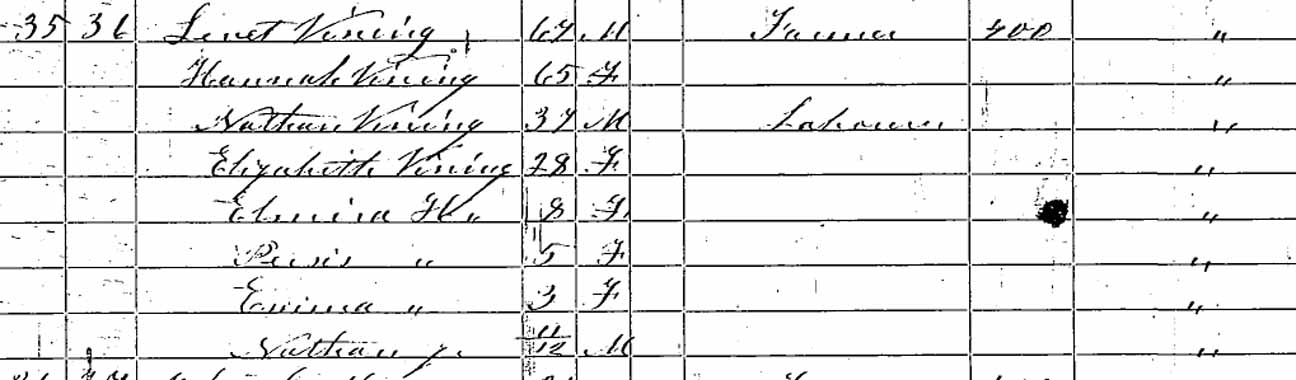 35 36 Vining 67 M Farmer 400 "
Hannah Vining 65 F "
Nathan Vining 37 M Labourer "
Elizabeth Vining 28 F "
Elmira H " 8 F "
Persis " 5 F "
Emma " 3 F "
Nathan Jr. 11/12 M "